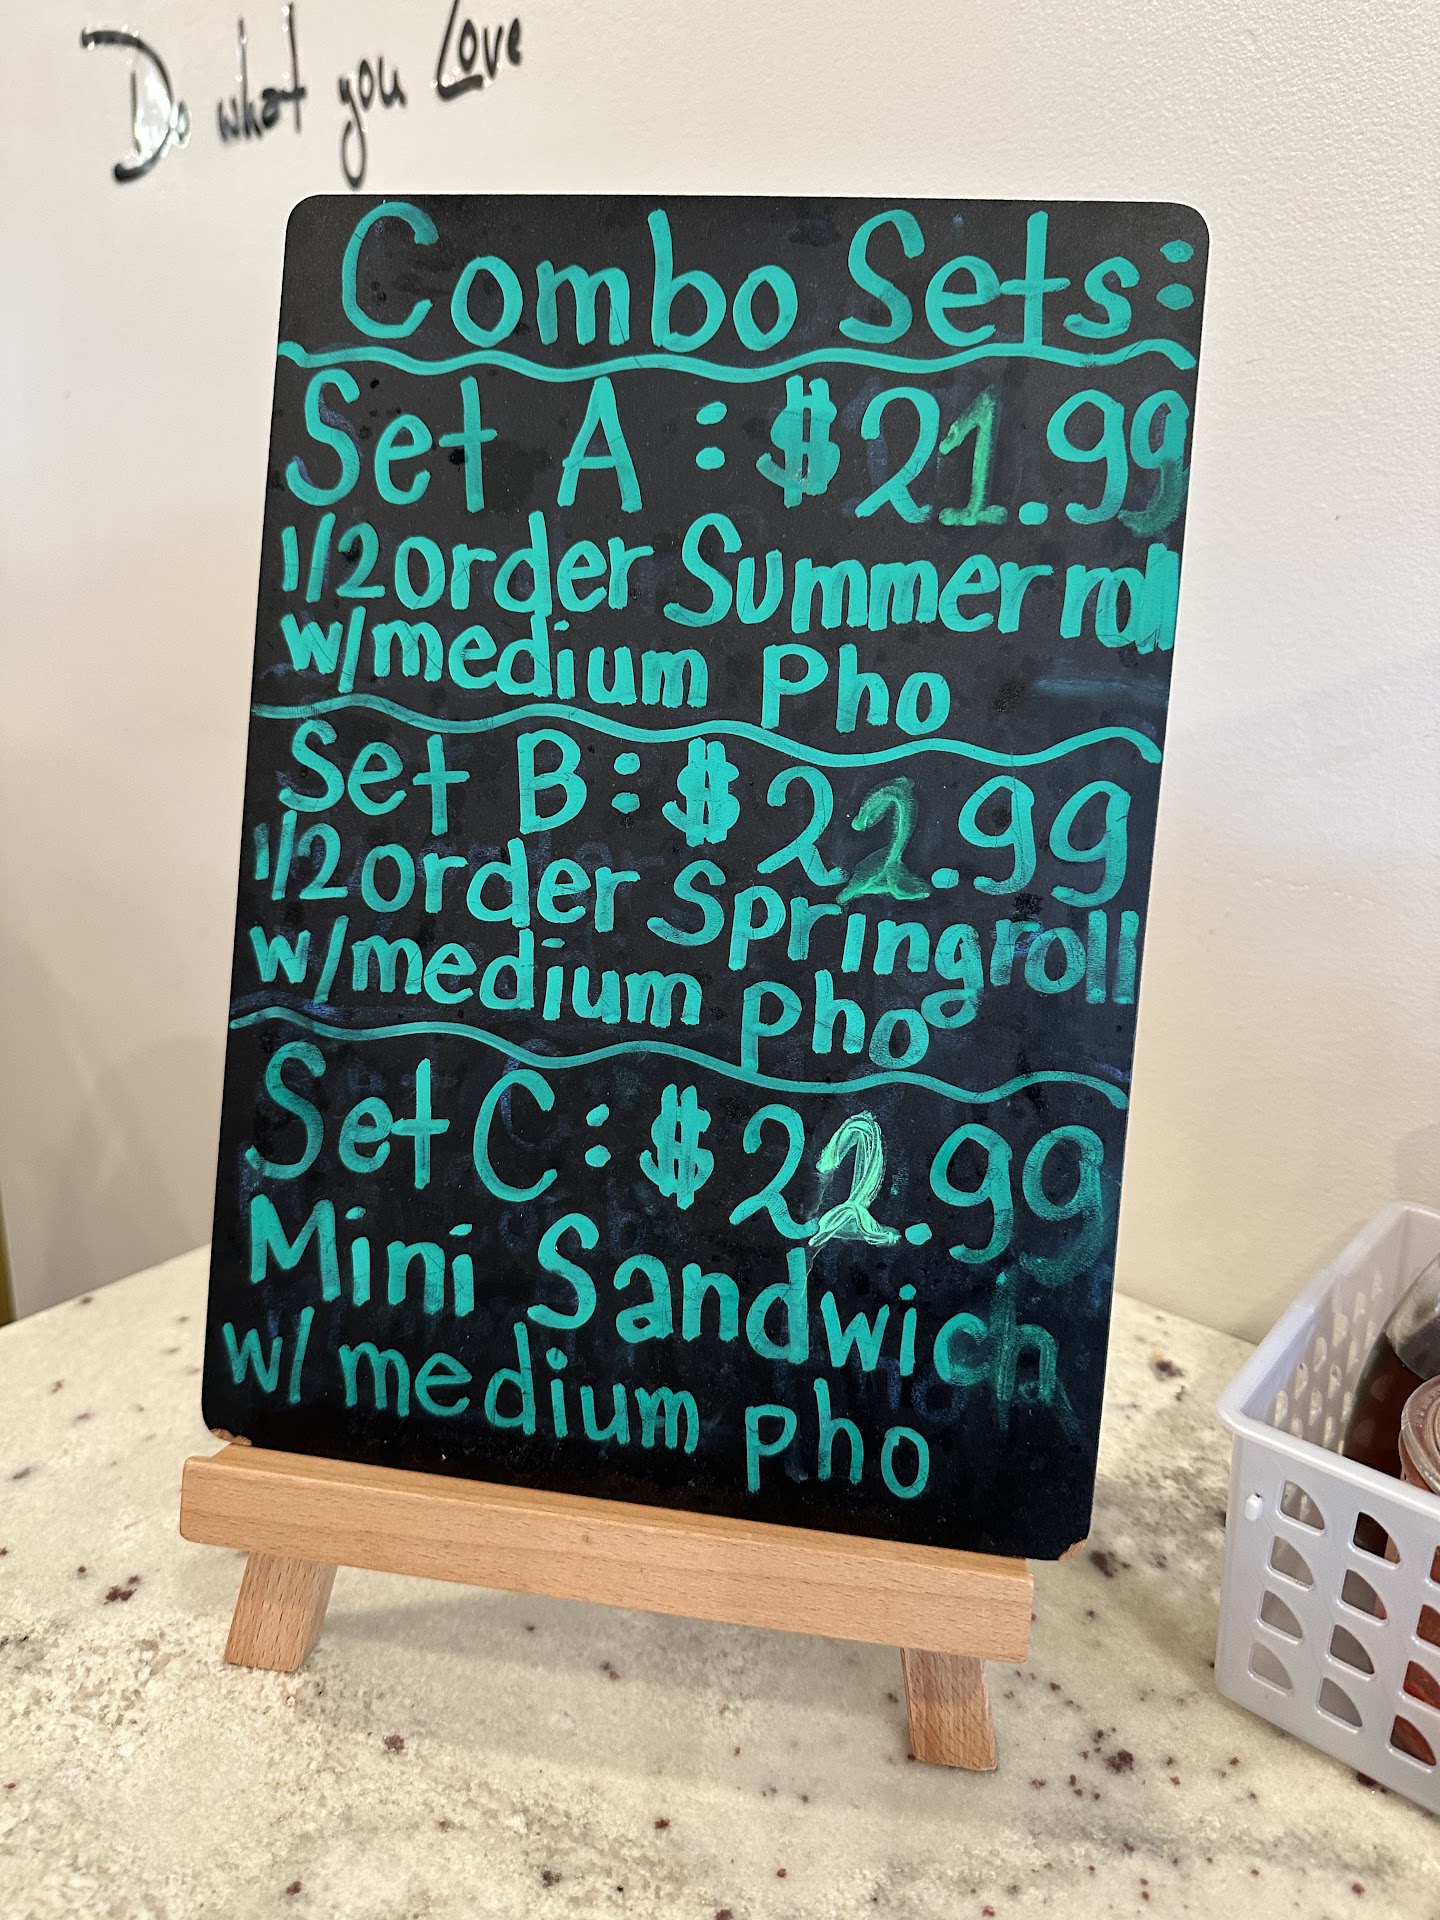 Do what you Love
Combo Sets:
Set A: $21.99
1/2 order Summer roll
w/medium Pho
Set B: $22.99
1/2 order Spring roll
w/medium pho
Set C: $22.99
Mini Sandwich
w/ medium pho